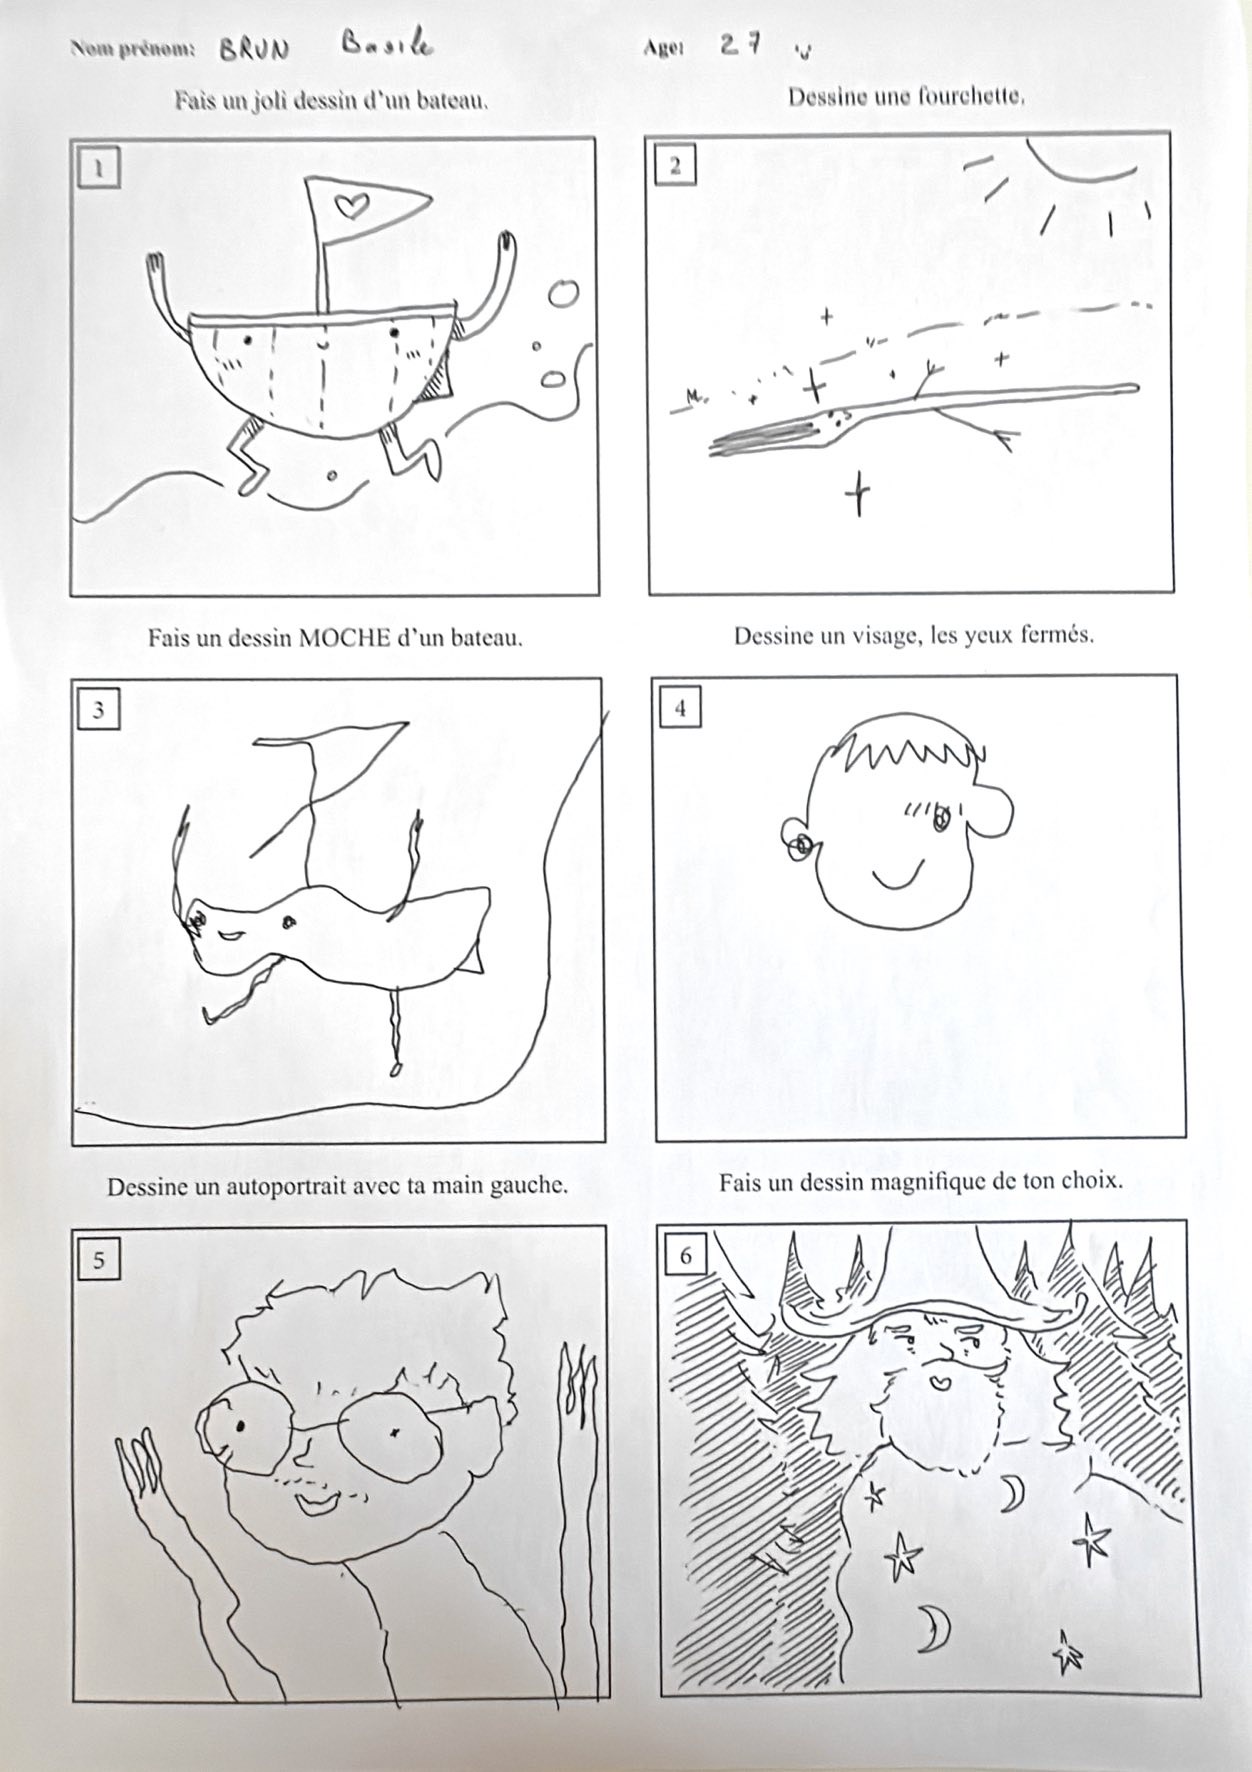 Nom prénom: BRUN Basile Age: 27
Fais un joli dessin d'un bateau.
Dessine une fourchette.
1
2
Fais un dessin MOCHE d'un bateau.
Dessine un visage, les yeux fermés.
3
4
Dessine un autoportrait avec ta main gauche.
Fais un dessin magnifique de ton choix.
5
6